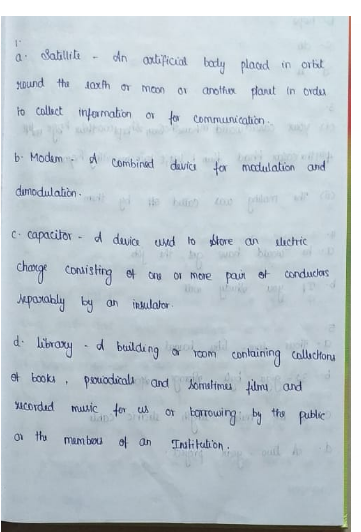 1.
a. Satellite - An artificial body placed in orbit
round the earth or moon or another planet in order
to collect information or for communication.
b. Modem - A combined device for modulation and
demodulation.
c. capacitor - A device used to store an electric
charge consisting of one or more pair of conductors
separably by an insulator.
d. library - A building or room containing collections
of books, periodicals and sometimes films and
recorded music for us or borrowing by the public
or the members of an Institution.